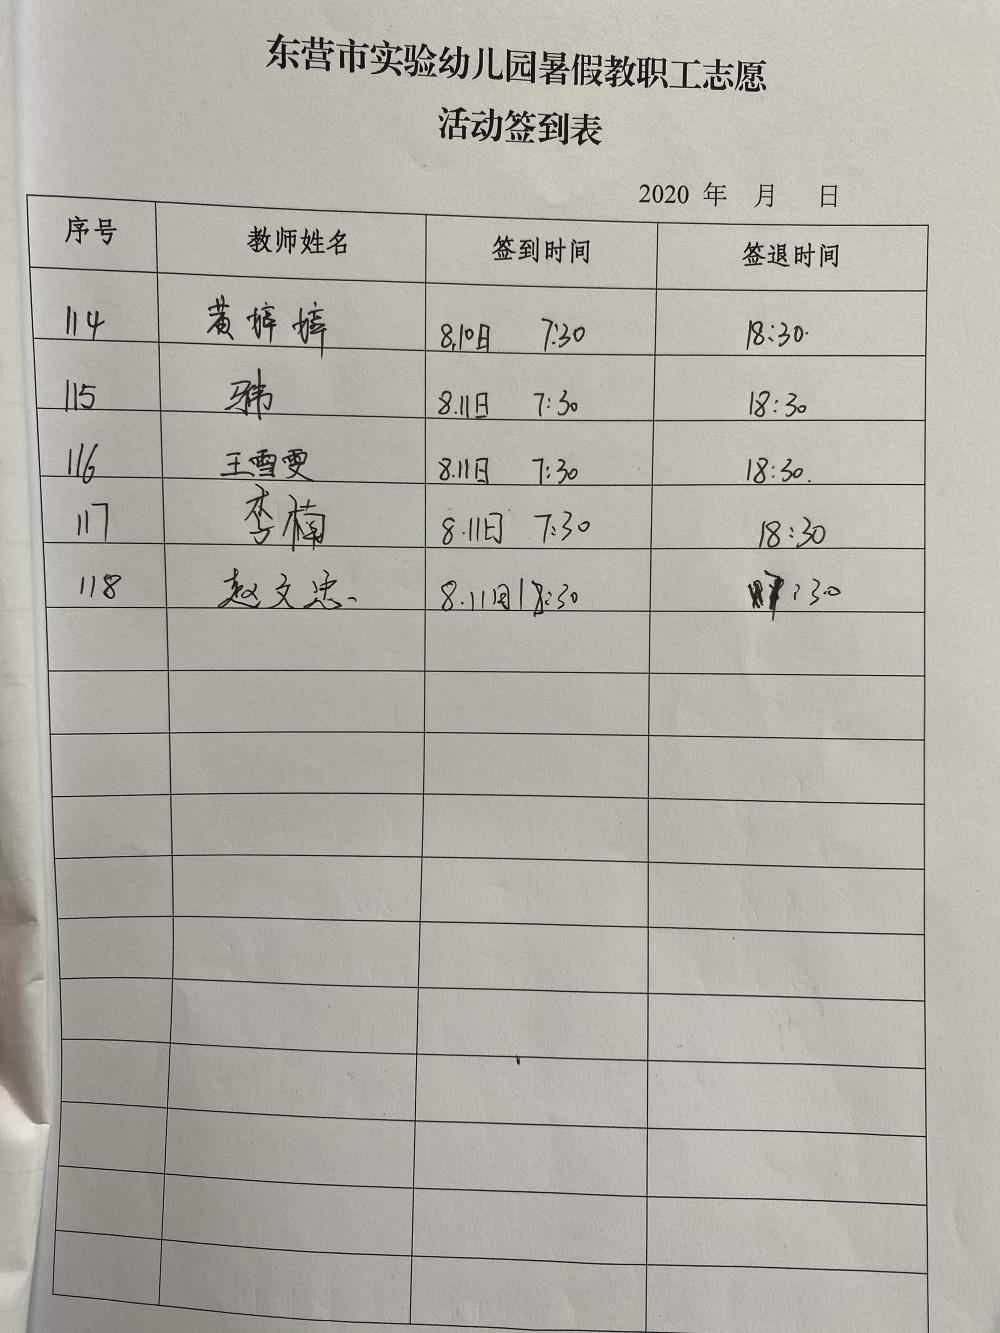 东营市实验幼儿园暑假教职工志愿
活动签到表
2020 年 月 日
序号 教师姓名 签到时间 签退时间
114 黄 8.10日 7:30 18:30.
115 8.11日 7:30 18:30
116 王雪雯 8.11日 7:30 18:30.
117 李楠 8.11日 7:30 18:30
118 赵文忠 8.11日 18:30 :30